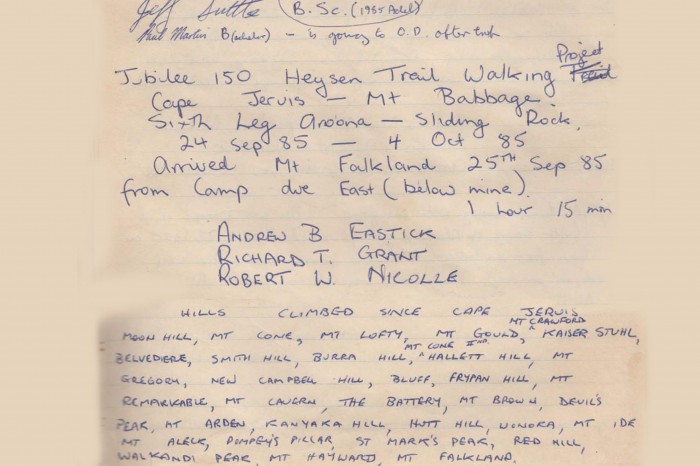 Jeff Suttle B.Sc. (1955 Adel)
Paul Martin B(achelor) – is going to O.D. after trip
Jubilee 150 Heysen Trail Walking Project
Cape Jervis – Mt Babbage.
Sixth Leg Aroona – Sliding Rock.
24 Sep 85 – 4 Oct 85
Arrived Mt Falkland 25TH Sep 85
from Camp due East (below mine).
1 hour 15 min
ANDREW B EASTICK
RICHARD T. GRANT
ROBERT W. NICOLLE
HILLS CLIMBED SINCE CAPE JERVIS
MT CRAWFORD
MOON HILL, MT CONE, MT LOFTY, MT GOULD, ^ KAISER STUHL,
MT CONE IIND.
BELVEDIERE, SMITH HILL, BURRA HILL, ^ HALLETT HILL, MT
GREGORY, NEW CAMPBELL HILL, BLUFF, FRYPAN HILL, MT
REMARKABLE, MT CAVERN, THE BATTERY, MT BROWN, DEVIL'S
PEAK, MT ARDEN, KANYAKA HILL, HUTT HILL, WONOKA, MT IDE
MT ALECK, POMPEY'S PILLAR, ST MARK'S PEAK, RED HILL,
WALKANDI PEAK, MT HAYWARD, MT FALKLAND.